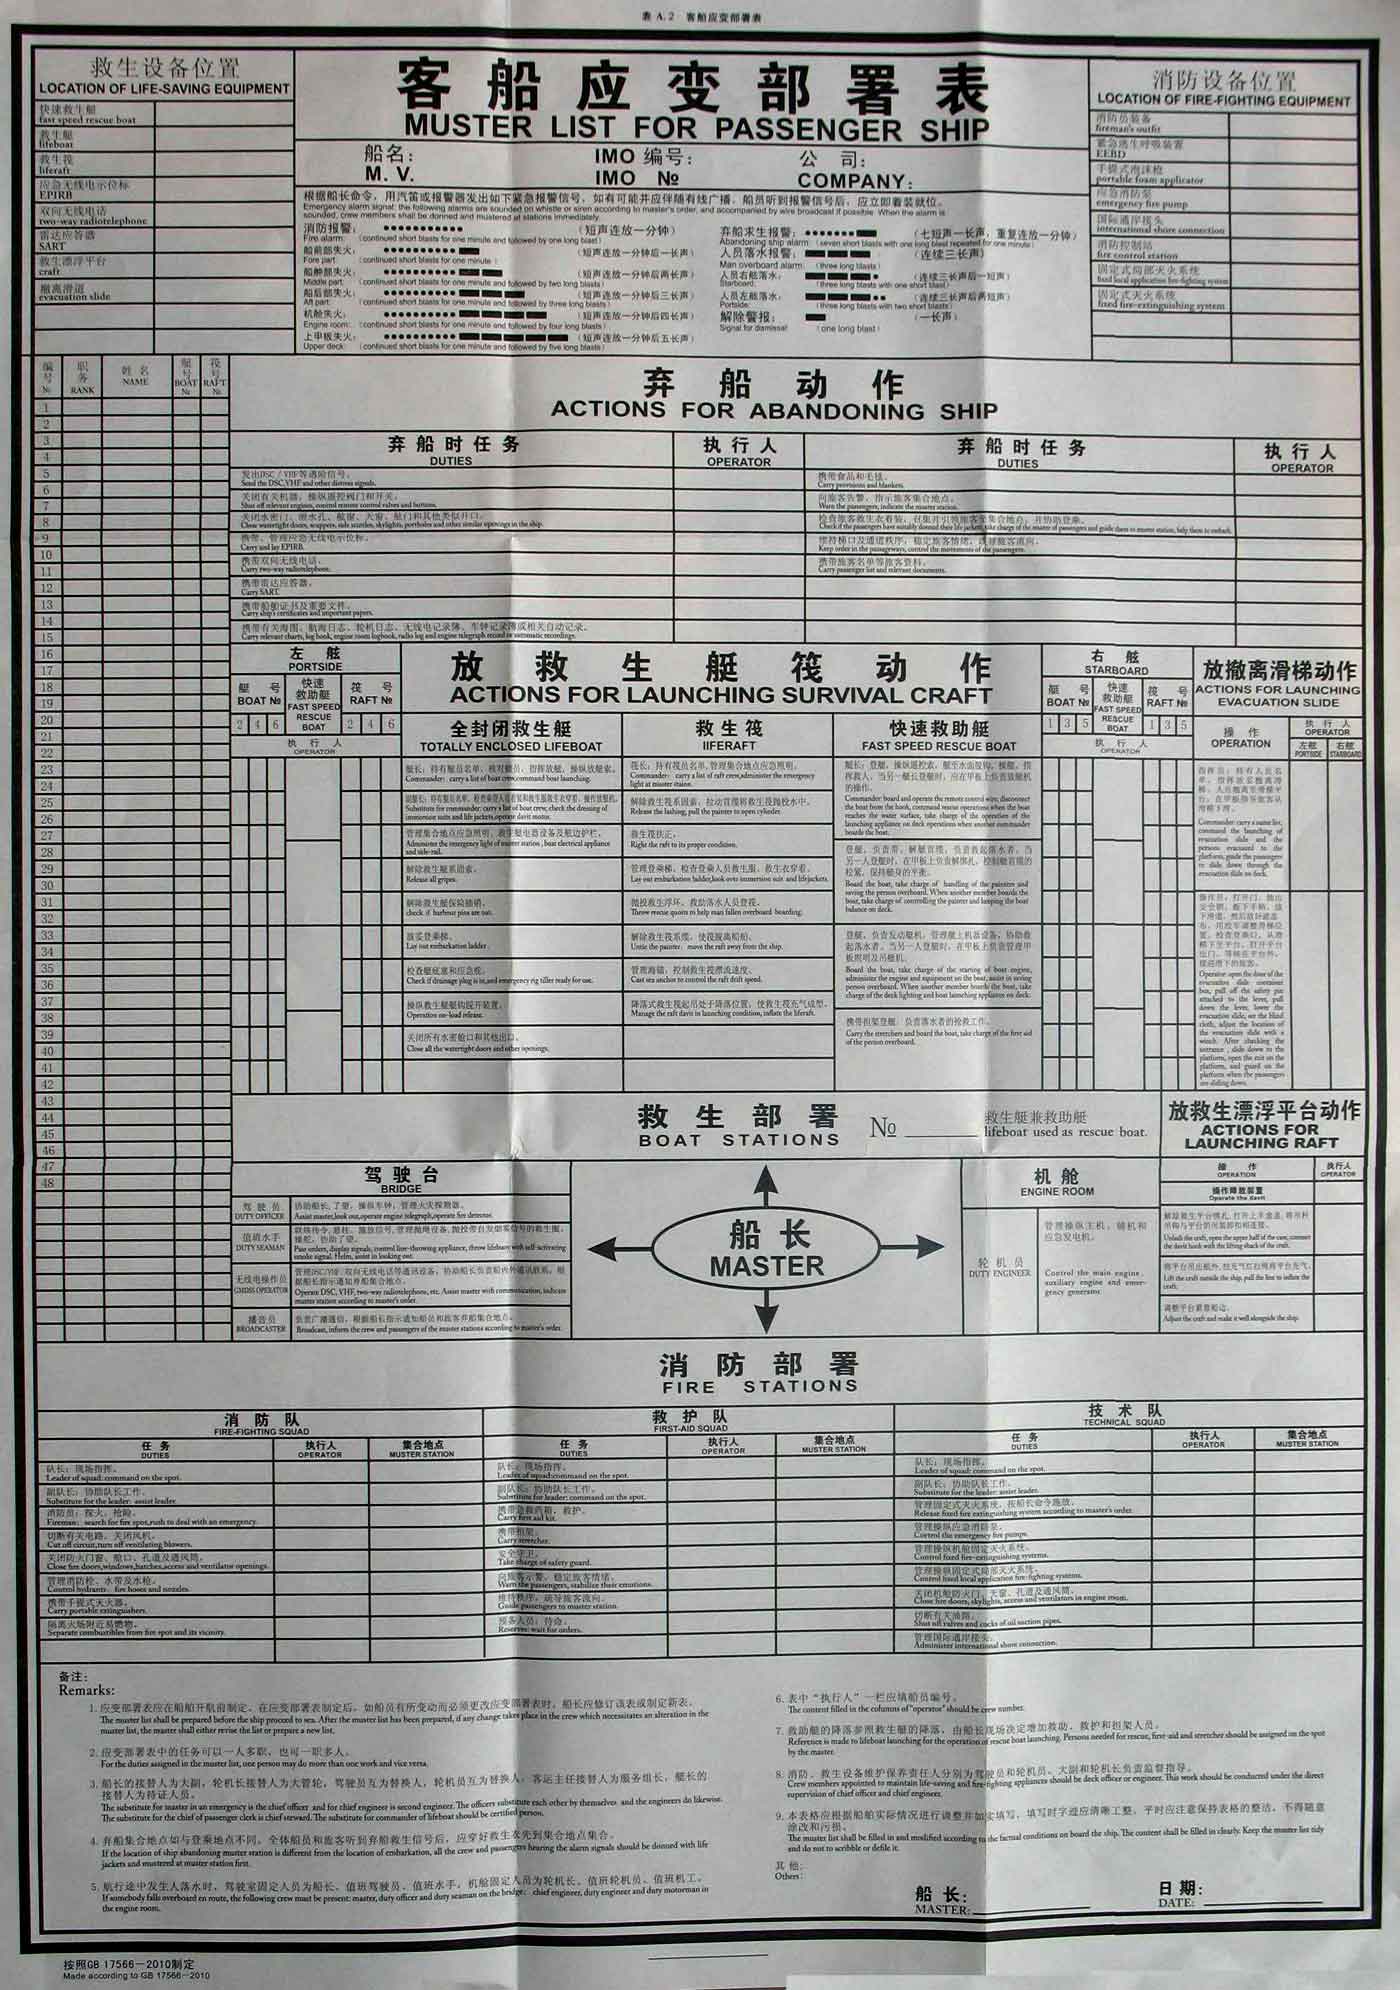 表 A.2 客船应变部署表
救生设备位置
LOCATION OF LIFE-SAVING EQUIPMENT
快速救生艇
fast speed rescue boat
救生艇
lifeboat
救生筏
liferaft
应急无线电示位标
EPIRB
双向无线电话
two-way radiotelephone
雷达应答器
SART
救生漂浮平台
craft
撤离滑道
evacuation slide
客船应变部署表
MUSTER LIST FOR PASSENGER SHIP
船名: IMO 编号: 公 司:
M. V. IMO № COMPANY:
根据船长命令，用汽笛或报警器发出如下紧急报警信号，如有可能并应伴随有线广播，船员听到报警信号后，应立即着装就位。
Emergency alarm signal: the following alarms are sounded on whistle or siren according to master's order, and accompanied by wire broadcast if possible. When the alarm is
sounded, crew members shall be donned and mustered at stations immediately.
消防报警: (短声连放一分钟)
Fire alarm: (continued short blasts for one minute and followed by one long blast)
船前部失火: (短声连放一分钟后一长声)
Fore part: (continued short blasts for one minute)
船舯部失火: (短声连放一分钟后两长声)
Middle part: (continued short blasts for one minute and followed by two long blasts)
船后部失火: (短声连放一分钟后三长声)
Aft part: (continued short blasts for one minute and followed by three long blasts)
机舱失火: (短声连放一分钟后四长声)
Engine room: (continued short blasts for one minute and followed by four long blasts)
上甲板失火: (短声连放一分钟后五长声)
Upper deck: (continued short blasts for one minute and followed by five long blasts)
弃船求生报警: (七短声一长声，重复连放一分钟)
Abandoning ship alarm: (seven short blasts with one long blast repeated for one minute)
人员落水报警: (连续三长声)
Man overboard alarm: (three long blasts)
人员右舷落水: (连续三长声后一短声)
Starboard: (three long blasts with one short blast)
人员左舷落水: (连续三长声后两短声)
Portside: (three long blasts with two short blasts)
解除警报: (一长声)
Signal for dismissal (one long blast)
消防设备位置
LOCATION OF FIRE-FIGHTING EQUIPMENT
消防员装备
fireman's outfit
紧急逃生呼吸装置
EEBD
手提式泡沫枪
portable foam applicator
应急消防泵
emergency fire pump
国际通岸接头
international shore connection
消防控制站
fire control station
固定式局部灭火系统
fixed local application fire-fighting system
固定式灭火系统
fixed fire-extinguishing system
编号 № 职务 RANK 姓名 NAME 艇号 BOAT № 筏号 RAFT №
1
2
3
4
5
6
7
8
9
10
11
12
13
14
15
16
17
18
19
20
21
22
23
24
25
26
27
28
29
30
31
32
33
34
35
36
37
38
39
40
41
42
43
44
45
46
47
48
弃船动作
ACTIONS FOR ABANDONING SHIP
弃船时任务 执行人 弃船时任务 执行人
DUTIES OPERATOR DUTIES OPERATOR
发出DSC/VHF等遇险信号。
Send the DSC,VHF and other distress signals.
关闭有关机器，操纵遥控阀门和开关。
Shut off relevant engines, control remote control valves and buttons.
关闭水密门、泄水孔、舷窗、天窗、舷门和其他类似开口。
Close watertight doors, scuppers, side scuttles, skylights, portholes and other similar openings in the ship.
携带、管理应急无线电示位标。
Carry and lay EPIRB.
携带双向无线电话。
Carry two-way radiotelephone.
携带雷达应答器。
Carry SART.
携带船舶证书及重要文件。
Carry ship's certificates and important papers.
携带有关海图、航海日志、轮机日志、无线电记录簿、车钟记录簿或相关自动记录。
Carry relevant charts, log book, engine room logbook, radio log and engine telegraph record or automatic recordings.
携带食品和毛毯。
Carry provisions and blankets.
向旅客告警，指示旅客集合地点。
Warn the passengers, indicate the muster station.
检查旅客救生衣着装，召集并引领旅客至集合地点，并协助登乘。
Check if the passengers have suitably donned their life jackets, take charge of the muster of passengers and guide them to muster station, help them to embark.
维持梯口及通道秩序，稳定旅客情绪，疏导旅客流向。
Keep order in the passageways, control the movements of the passengers.
携带旅客名单等旅客资料。
Carry passenger list and relevant documents.
左舷
PORTSIDE
艇号 BOAT № 快速救助艇 FAST SPEED RESCUE BOAT 筏号 RAFT №
2 4 6 2 4 6
执行人
OPERATOR
放救生艇筏动作
ACTIONS FOR LAUNCHING SURVIVAL CRAFT
全封闭救生艇 救生筏 快速救助艇
TOTALLY ENCLOSED LIFEBOAT IIFERAFT FAST SPEED RESCUE BOAT
艇长：持有艇员名单，核对艇员，指挥放艇，操纵放艇索。
Commander: carry a list of boat crew, command boat launching.
副艇长：持有艇员名单，检查乘登人员着装和救生服救生衣穿着，操作放艇机。
Substitute for commander: carry a list of boat crew, check the dressing of
immersion suits and life jackets, operate davit motor.
管理集合地点应急照明、救生艇电器设备及舷边护栏。
Administer the emergency light of muster station, boat electrical appliance
and side-rail.
解除救生艇系固索。
Release all gripes.
解除救生艇保险插销。
check if harbour pins are out.
放妥登乘梯。
Lay out embarkation ladder.
检查艇底塞和应急舵。
Check if drainage plug is in, and emergency rig tiller ready for use.
操纵救生艇艇钩脱开装置。
Operation on-load release.
关闭所有水密舱口和其他出口。
Close all the watertight doors and other openings.
筏长：持有筏员名单,管理集合地点应急照明。
Commander: carry a list of raft crew,administer the emergency
light at muster staion.
解除救生筏系固索，拉动首缆将救生筏抛投水中。
Release the lashing, pull the painter to open cylinder.
救生筏扶正。
Right the raft to its proper condition.
管理登乘梯，检查登乘人员救生服、救生衣穿着。
Lay out embarkation ladder,look over immersion suit and lifejackets.
抛投救生浮环，救助落水人员登筏。
Throw rescue quoits to help man fallen overboard boarding.
解除救生筏系缆，使筏脱离船舶。
Untie the painter, move the raft away from the ship.
管理海锚，控制救生筏漂流速度。
Cast sea anchor to control the raft drift speed.
降落式救生筏起吊处于降落位置，使救生筏充气成型。
Manage the raft davit in launching condition, inflate the liferaft.
艇长：登艇，操纵遥控索，艇至水面脱钩，操艇，指
挥救人，当另一艇长登艇时，应在甲板上负责放艇机
的操作。
Commander: board and operate the remote control wire, disconnect
the boat from the hook, command rescue operations when the boat
reaches the water surface, take charge of the operation of the
launching appliance on deck operations when another commander
boards the boat.
登艇，负责带、解艇首缆，负责救起落水者，当
另一人登艇时，在甲板上负责解绑扎，控制艇首缆的
松紧，保持艇身的平衡。
Board the boat, take charge of handling of the painter and
saving the person overboard. When another member boards the
boat, take charge of controlling the painter and keeping the boat
balance on deck.
登艇，负责发动艇机，管理艇上机器设备，协助救
起落水者。当另一人登艇时，在甲板上负责管理甲
板照明及吊艇机。
Board the boat, take charge of the starting of boat engine,
administer the engine and equipment on the boat, assist in saving
person overboard. When another member boards the boat, take
charge of the deck lighting and boat launching appliance on deck.
携带担架登艇，负责落水者的抢救工作。
Carry the stretchers and board the boat, take charge of the first aid
of the person overboard.
右舷
STARBOARD
艇号 BOAT № 快速救助艇 FAST SPEED RESCUE BOAT 筏号 RAFT №
1 3 5 1 3 5
执行人
OPERATOR
放撤离滑梯动作
ACTIONS FOR LAUNCHING
EVACUATION SLIDE
操作 执行人
OPERATION OPERATOR
左舷 右舷
PORTSIDE STARBOARD
Commander: carry a name list,
command the launching of
evacuation slide and the
persons evacuated to the
platform, guide the passengers
to slide down through the
evacuation slide on deck.
Operator: open the door of the
evacuation slide container
box, pull off the safety pin
attached to the lever, pull
down the lever, lower the
evacuation slide, set the blind
cloth, adjust the location of
the evacuation slide with a
winch. After checking the
entrance, slide down to the
platform, open the exit on the
platform, and guard on the
platform when the passengers
are sliding down.
救生部署
BOAT STATIONS
№ 救生艇兼救助艇
lifeboat used as rescue boat.
驾驶台
BRIDGE
驾驶员 协助船长，了望，操纵车钟，管理火灾探测器。
DUTY OFFICER Assist master,look out,operate engine telegraph,operate fire detector.
值班水手
DUTY SEAMAN
Pass orders, display signals, control line-throwing appliance, throw lifebuoy with self-activating
smoke signal. Helm, assist in looking out.
无线电操作员
GMDSS OPERATOR
管理DSC/VHF、双向无线电话等通讯设备，协助船长负责船内外通讯联系。根
据船长指示通知弃船集合地点。
Operate DSC, VHF, two-way radiotelephone, etc. Assist master with communication, indicate
muster station according to master's order.
播音员 负责广播通信，根据船长指示通知船员和旅客弃船集合地点。
BROADCASTER Broadcast, inform the crew and passengers of the muster stations according to master's order.
船长
MASTER
机舱
ENGINE ROOM
轮机员
DUTY ENGINEER
管理操纵主机，辅机和
应急发电机。
Control the main engine,
auxiliary engine and emer-
gency generator.
放救生漂浮平台动作
ACTIONS FOR
LAUNCHING RAFT
操作 执行人
OPERATION OPERATOR
操作降放装置
Operate the davit
Unlash the craft, open the upper half of the case, connect
the davit hook with the lifting shack of the craft.
将平台吊出舷外，拉充气缆拉绳将平台充气。
Lift the craft outside the ship, pull the line to inflate the
craft.
调整平台紧靠船边。
Adjust the craft and make it well alongside the ship.
消防部署
FIRE STATIONS
消防队
FIRE-FIGHTING SQUAD
任务 执行人 集合地点
DUTIES OPERATOR MUSTER STATION
队长：现场指挥。
Leader of squad:command on the spot.
副队长：协助队长工作。
Substitute for the leader: assist leader.
消防员：探火，抢险。
Fireman: search for fire spot,rush to deal with an emergency.
切断有关电路，关闭风机。
Cut off circuit,turn off ventilating blowers.
关闭防火门窗、舱口、孔道及通风筒。
Close fire doors,windows,hatches,access and ventilator openings.
管理消防栓、水带及水枪。
Control hydrants, fire hoses and nozzles.
携带手提式灭火器。
Carry portable extinguishers.
隔离火场附近易燃物。
Separate combustibles from fire spot and its vicinity.
救护队
FIRST-AID SQUAD
任务 执行人 集合地点
DUTIES OPERATOR MUSTER STATION
队长：现场指挥。
Leader of squad:command on the spot.
副队长：协助队长工作。
Substitute for leader: command on the spot.
携带急救药箱，救护。
Carry first aid kit.
携带担架。
Carry stretcher.
安全守卫。
Take charge of safety guard.
向旅客示警，稳定旅客情绪。
Warn the passengers, stabilize their emotions.
维持秩序，疏导旅客流向。
Guide passengers to muster station.
预备人员：待命。
Reserves: wait for orders.
技术队
TECHNICAL SQUAD
任务 执行人 集合地点
DUTIES OPERATOR MUSTER STATION
队长：现场指挥。
Leader of squad: command on the spot.
副队长：协助队长工作。
Substitute for the leader: assist leader.
管理固定式灭火系统，按船长命令施放。
Release fixed fire extinguishing system according to master's order.
管理操纵应急消防泵。
Control the emergency fire pumps.
管理操纵机舱固定灭火系统。
Control fixed fire-extinguishing systems.
管理操纵固定式局部灭火系统。
Control fixed local application fire-fighting systems.
关闭机舱防火门、天窗、孔道及通风筒。
Close fire doors, skylights, access and ventilators in engine room.
切断有关油路。
Shut oil valves and cocks of oil suction pipes.
管理国际通岸接头。
Administer international shore connection.
备注:
Remarks:
1. 应变部署表应在船舶开航前制定。在应变部署表制定后，如船员有所变动而必须更改应变部署表时，船长应修订该表或制定新表。
The muster list shall be prepared before the ship proceed to sea. After the muster list has been prepared, if any change takes place in the crew which necessitates an alteration in the
muster list, the master shall either revise the list or prepare a new list.
2. 应变部署表中的任务可以一人多职，也可一职多人。
For the duties assigned in the muster list, one person may do more than one work and vice versa.
3. 船长的接替人为大副，轮机长接替人为大管轮，驾驶员互为替换人，轮机员互为替换人，客运主任接替人为服务组长，艇长的
接替人为持证人员。
The substitute for master in an emergency is the chief officer and for chief engineer is second engineer. The officers substitute each other by themselves and the engineers do likewise.
The substitute for the chief of passenger clerk is chief steward. The substitute for commander of lifeboat should be certified person.
4. 弃船集合地点如与登乘地点不同，全体船员和旅客听到弃船救生信号后，应穿好救生衣先到集合地点集合。
If the location of ship abandoning muster station is different from the location of embarkation, all the crew and passengers hearing the alarm signals should be donned with life
jackets and mustered at muster station first.
5. 航行途中发生人落水时，驾驶室固定人员为船长、值班驾驶员、值班水手，机舱固定人员为轮机长、值班轮机员、值班机工。
If somebody falls overboard en route, the following crew must be present: master, duty officer and duty seaman on the bridge; chief engineer, duty engineer and duty motorman in
the engine room.
6. 表中“执行人”一栏应填船员编号。
The content filled in the columns of "operator" should be crew number.
7. 救助艇的降落参照救生艇的降落，由船长现场决定增加救助、救护和担架人员。
Reference is made to lifeboat launching for the operation of rescue boat launching. Persons needed for rescue, first-aid and stretcher should be assigned on the spot
by the master.
8. 消防、救生设备维护保养责任人分别为驾驶员和轮机员，大副和轮机长负责监督指导。
Crew members appointed to maintain life-saving and fire-fighting appliances should be deck officer or engineer. This work should be conducted under the direct
supervision of chief officer and chief engineer.
9. 本表格应根据船舶实际情况进行调整并如实填写，填写时字迹应清晰工整，平时应注意保持表格的整洁，不得随意
涂改和污损。
The muster list shall be filled in and modified according to the factual conditions on board the ship. The content shall be filled in clearly. Keep the muster list tidy
and do not to scribble or defile it.
其他:
Others:
船 长: 日 期:
MASTER: DATE:
按照GB 17566－2010制定
Made according to GB 17566－2010